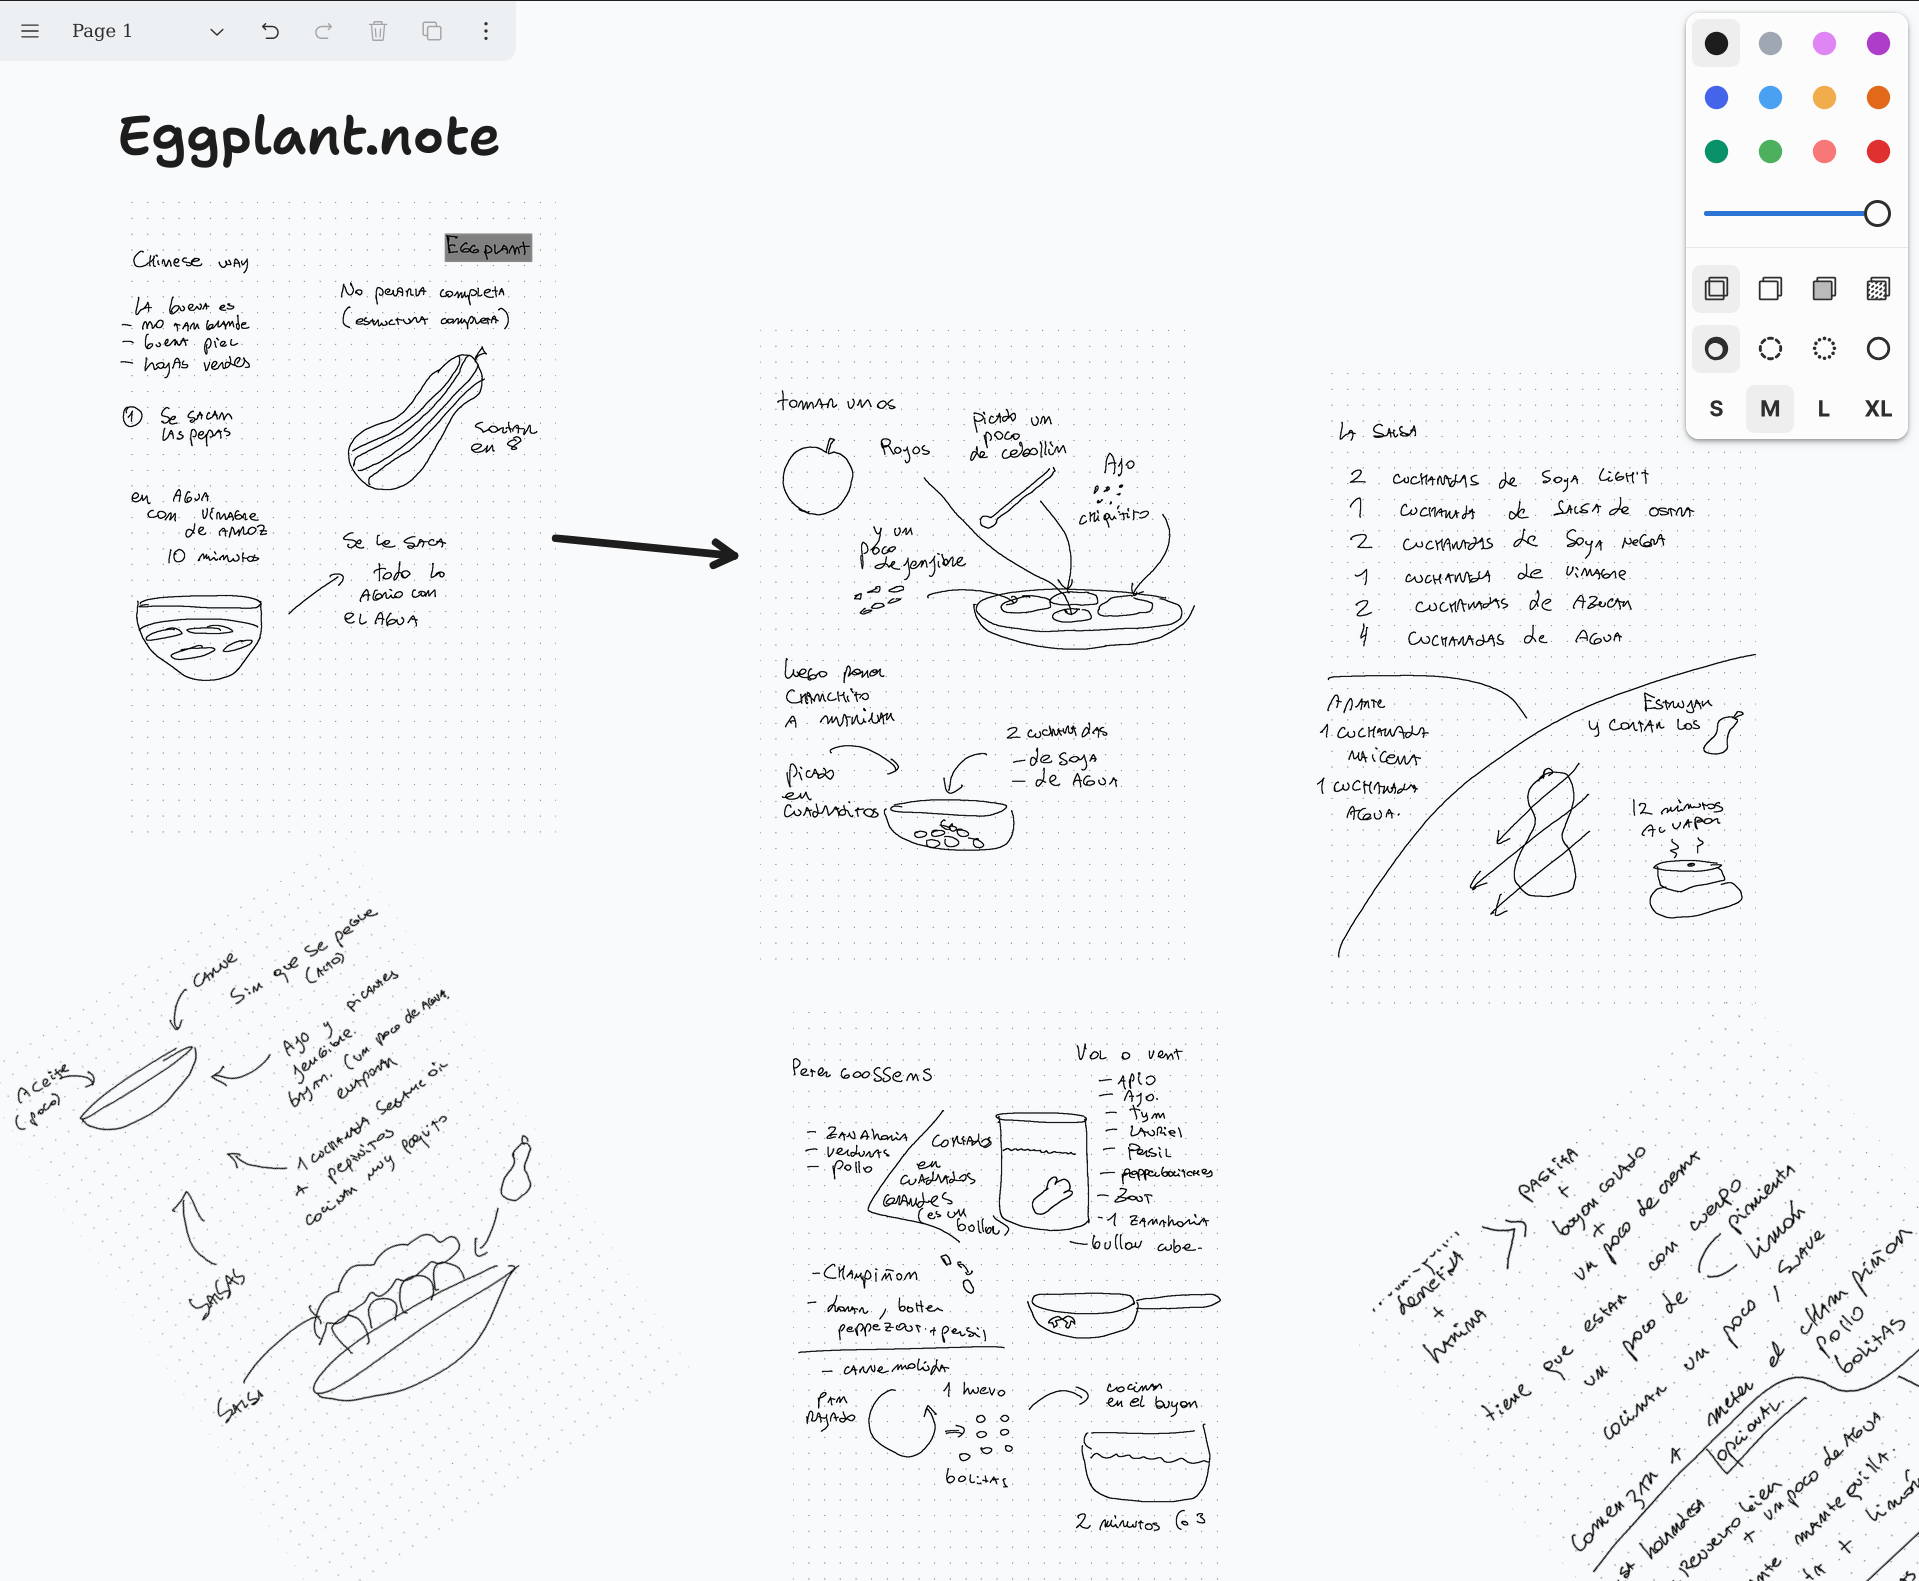 Page 1
Eggplant.note
Eggplant
Chinese way
La buena es
- no tan grande
- buena piel
- hojas verdes
No pelarla completa
(estructura completa)
1 Se sacan
las pepas
Cortar
en 8
en Agua
con vinagre
de arroz
10 minutos
Se le saca
todo lo
Agrio con
el Agua
tomar unos
Royos
picado un
poco
de cebollin
Ajo
chiquitito
y un
poco
de jenjibre
luego poner
Chanchito
A marinar
Picado
en
Cuadraditos
2 cucharadas
- de soja
- de Agua
La Salsa
2 cucharadas de soya light
1 cucharada de salsa de ostra
2 cucharadas de soya negra
1 cucharada de vinagre
2 cucharadas de Azucar
4 cucharadas de Agua
Aparte
1 cucharada
maicena
1 cucharada
Agua.
Estrujar
y cortar los
12 minutos
al vapor
carne
Sin que se pegue
(Alto)
Aceite
(poco)
Ajo y picantes
jengibre.
bajm. (un poco de Agua
1 cucharada sesame oil
+ pepinitos
cocinar muy poquito
Salsas
Salsa
Peter Goossens
- Zanahoria
- verduras
- pollo
cortados
en
cuadrados
grandes
(es un
bollo)
Vol o vent
- Apio
- Ajo.
- tym
- Lauriel
- Persil
- Zout
- 1 Zanahoria
- bullou cube.
- Champiñon
- dorar, botter
peppezout + persil
- carne molida
Pan
Rayado
1 huevo
bolitas
cocinar
en el buyon
2 minutos (o 3
derretida
+
harina
pastita
+
buyon colado
+
un poco de crema
tiene que estar con cuerpo
un poco de
pimienta
limón
cocinar un poco, suave
Comenzar A meter el champiñon
pollo
bolitas
opcional
revuelto bien
+ un poco de Agua
mantequilla.
+ limón
S
M
L
XL